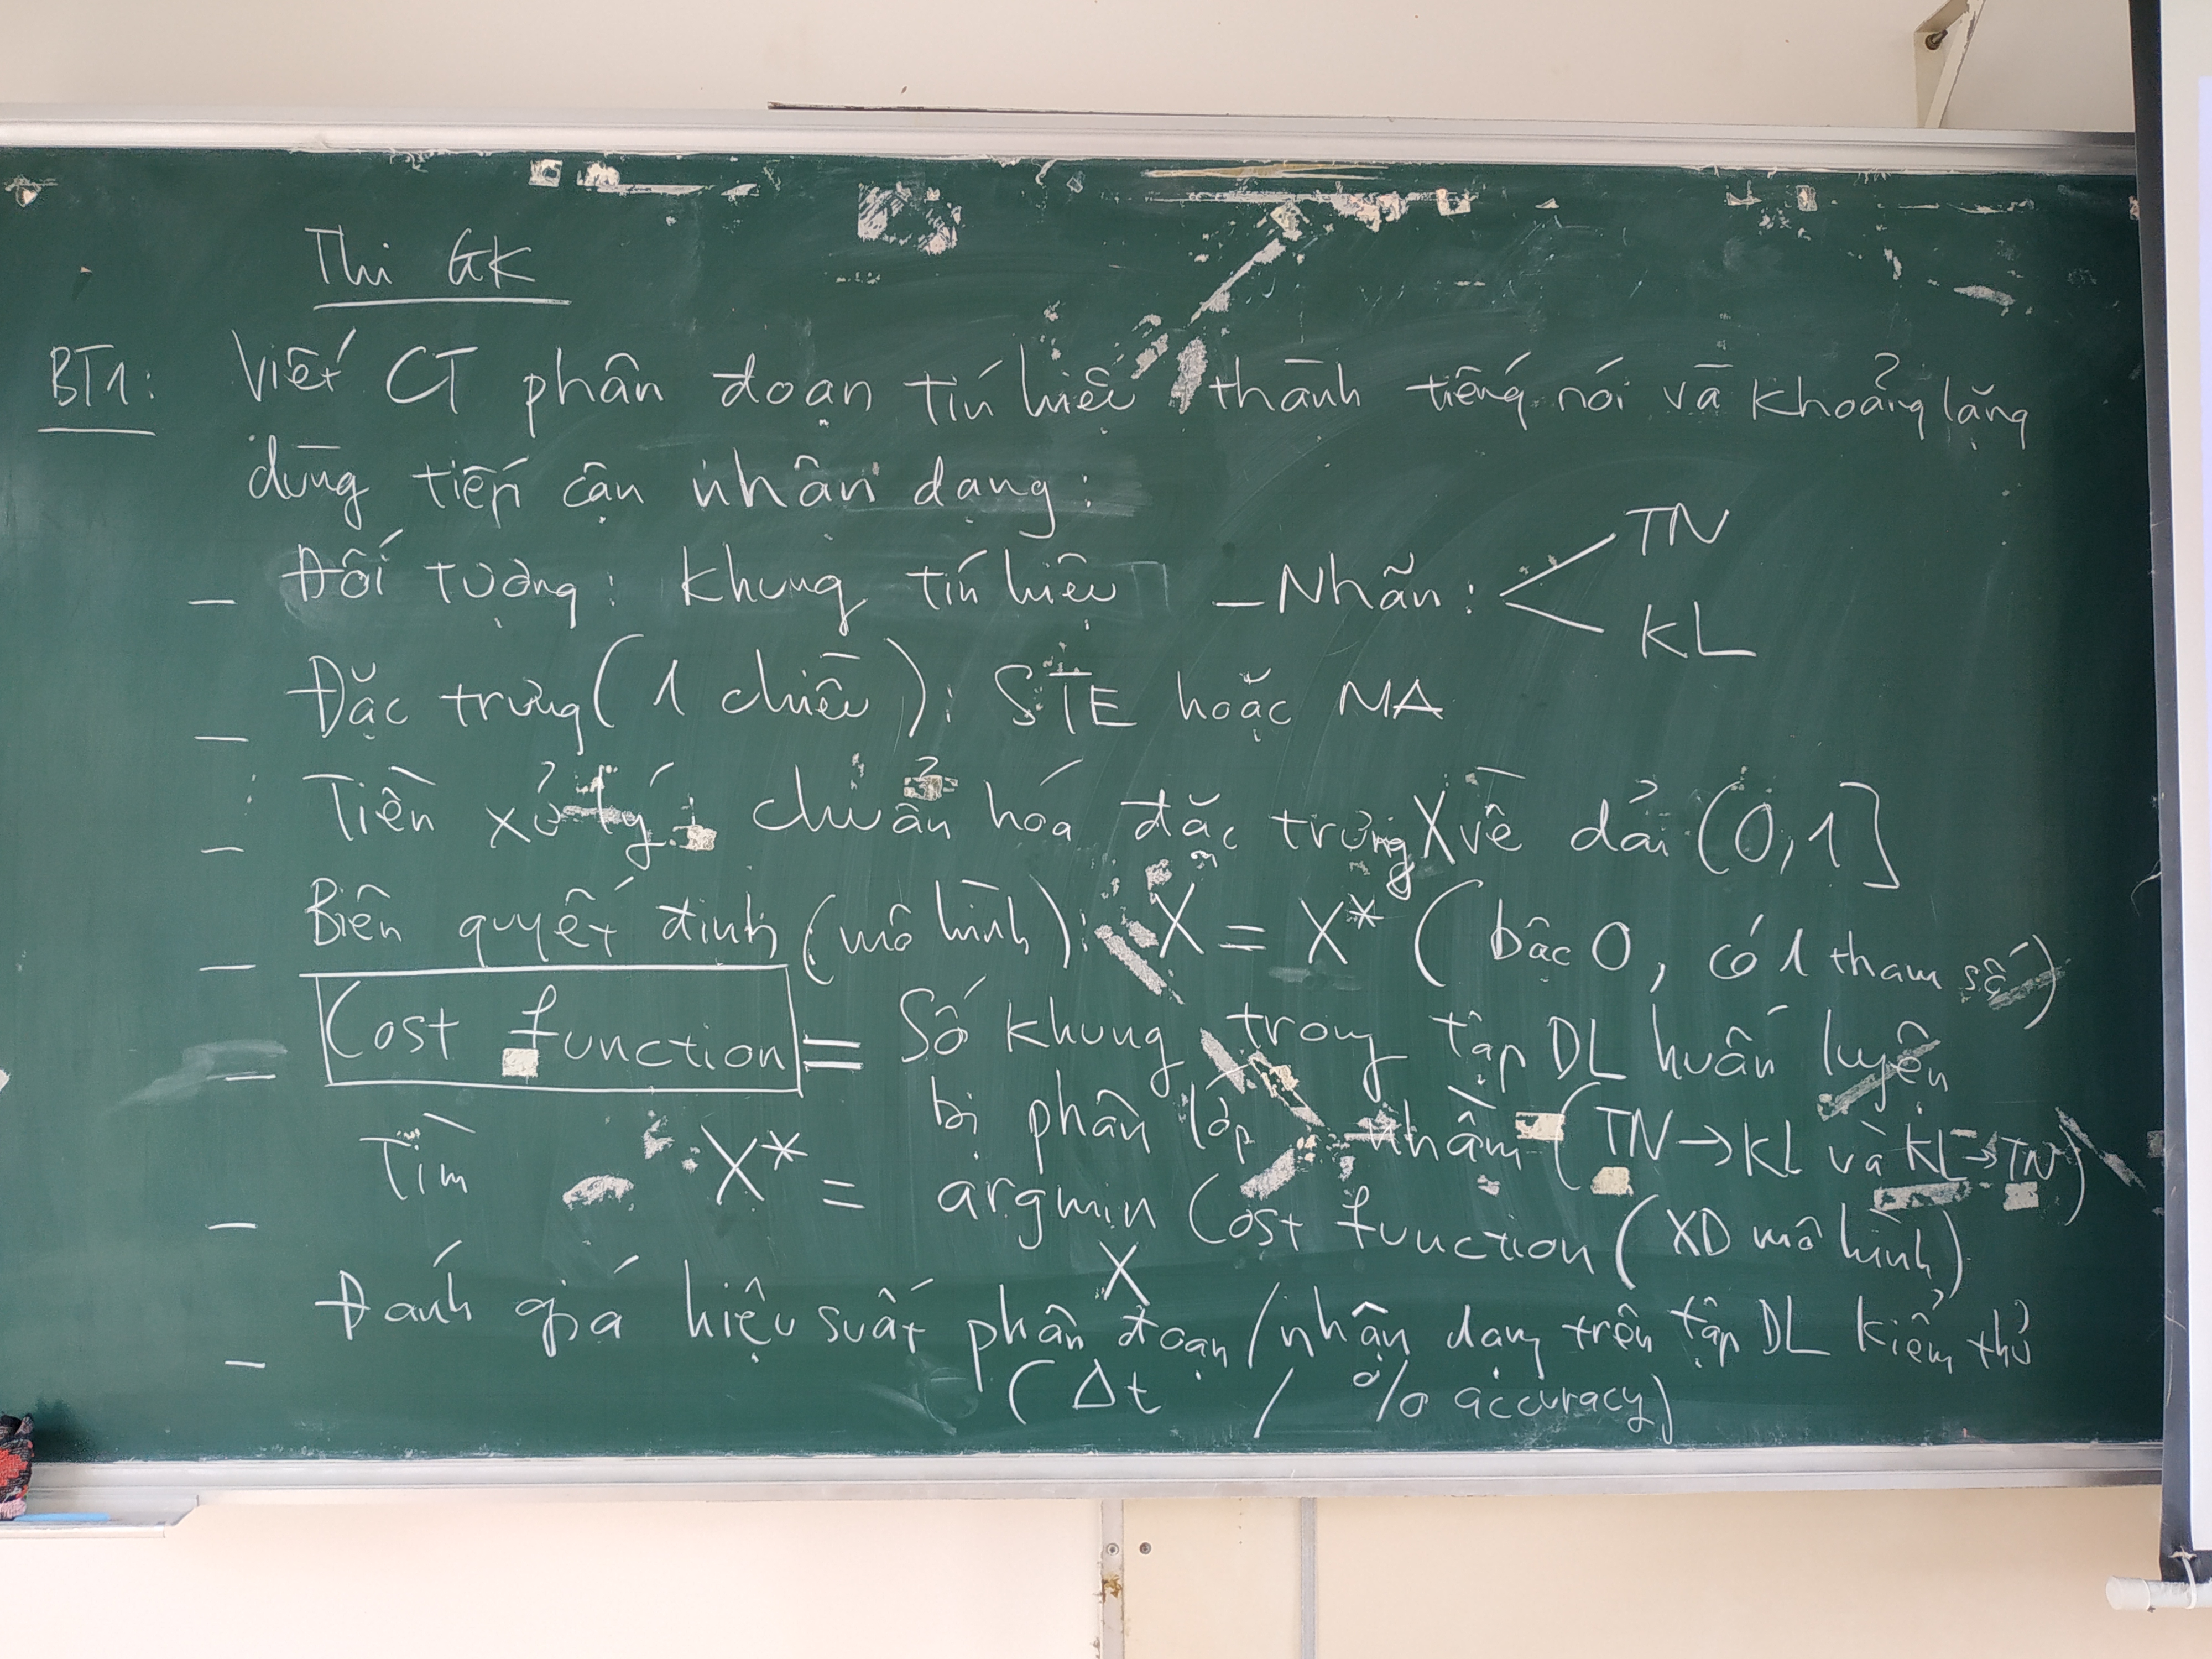 Thi GK
BT1: Viết CT phân đoạn tín hiệu thành tiếng nói và khoảng lặng
dùng tiếp cận nhận dạng:
– Đối tượng: Khung tín hiệu – Nhãn: TN
KL
– Đặc trưng (1 chiều): STE hoặc MA
– Tiền xử lý: chuẩn hóa đặc trưng X về dải (0,1]
– Biên quyết định (mô hình): X = X* (bậc 0, có 1 tham số)
– Cost function = Số khung trong tập DL huấn luyện
bị phân lớp nhầm (TN → KL và KL → TN)
– Tìm X* = argmin Cost function (XD mô hình)
X
– Đánh giá hiệu suất phân đoạn / nhận dạng trên tập DL kiểm thử
(Δt / % accuracy)